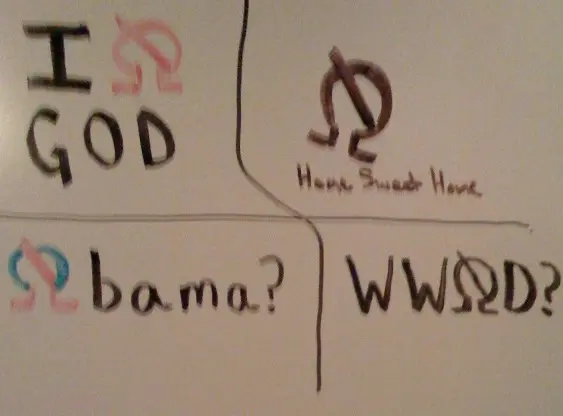 I Ω
GOD
Ω
Home Sweet Home
Ωbama?
WWΩD?